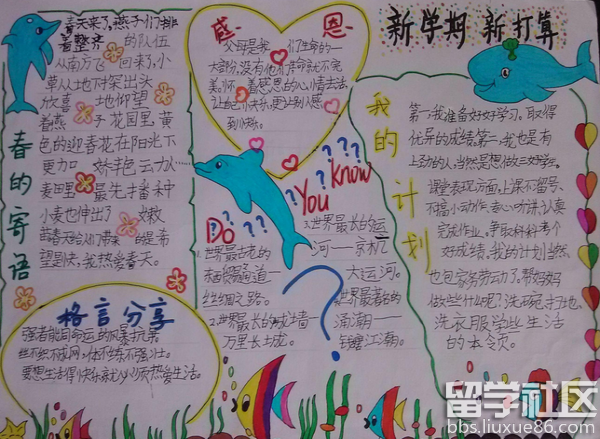 春天来了,燕子们排
着整齐的队伍
从南方飞回来了,小
草从土地下探出头
欣喜地仰望
着燕子花园里,黄
色的迎春花在阳光下
更加娇艳
麦田里最先播种
小麦也伸出了嫩
春天给人们带来的是希
望是快,我热爱春天。
春的寄语
格言分享
强者能同命运的风暴抗争
丝不织不成网,体不炼不强壮。
热爱生活。
感恩
父母是我们生命的一
大部分,没有他们生命就不完
美。怀着感恩的心情去活,
让自己快乐,更让别人感
到快乐。
Do You Know
1.世界最古老的
通道——
丝绸之路。
2.世界最长的城墙——
万里长城。
3.世界最长的运
河——京杭
大运河。
世界最著名的
涌潮——
钱塘江潮。
新学期 新打算
我的计划
第一,我准备好好学习,取得
优异的成绩。第二,我也是有
上劲的人,当然是想做三好学生。
课堂表现方面,上课不
不搞小动作,专心听讲,认真
完成作业。争取科科考个
好成绩。我的计划当然
也包家务劳动了,帮妈妈
做些什么呢?洗碗,扫地,
洗衣服学些生活
的本领。
留学社区
bbs.liuxue86.com